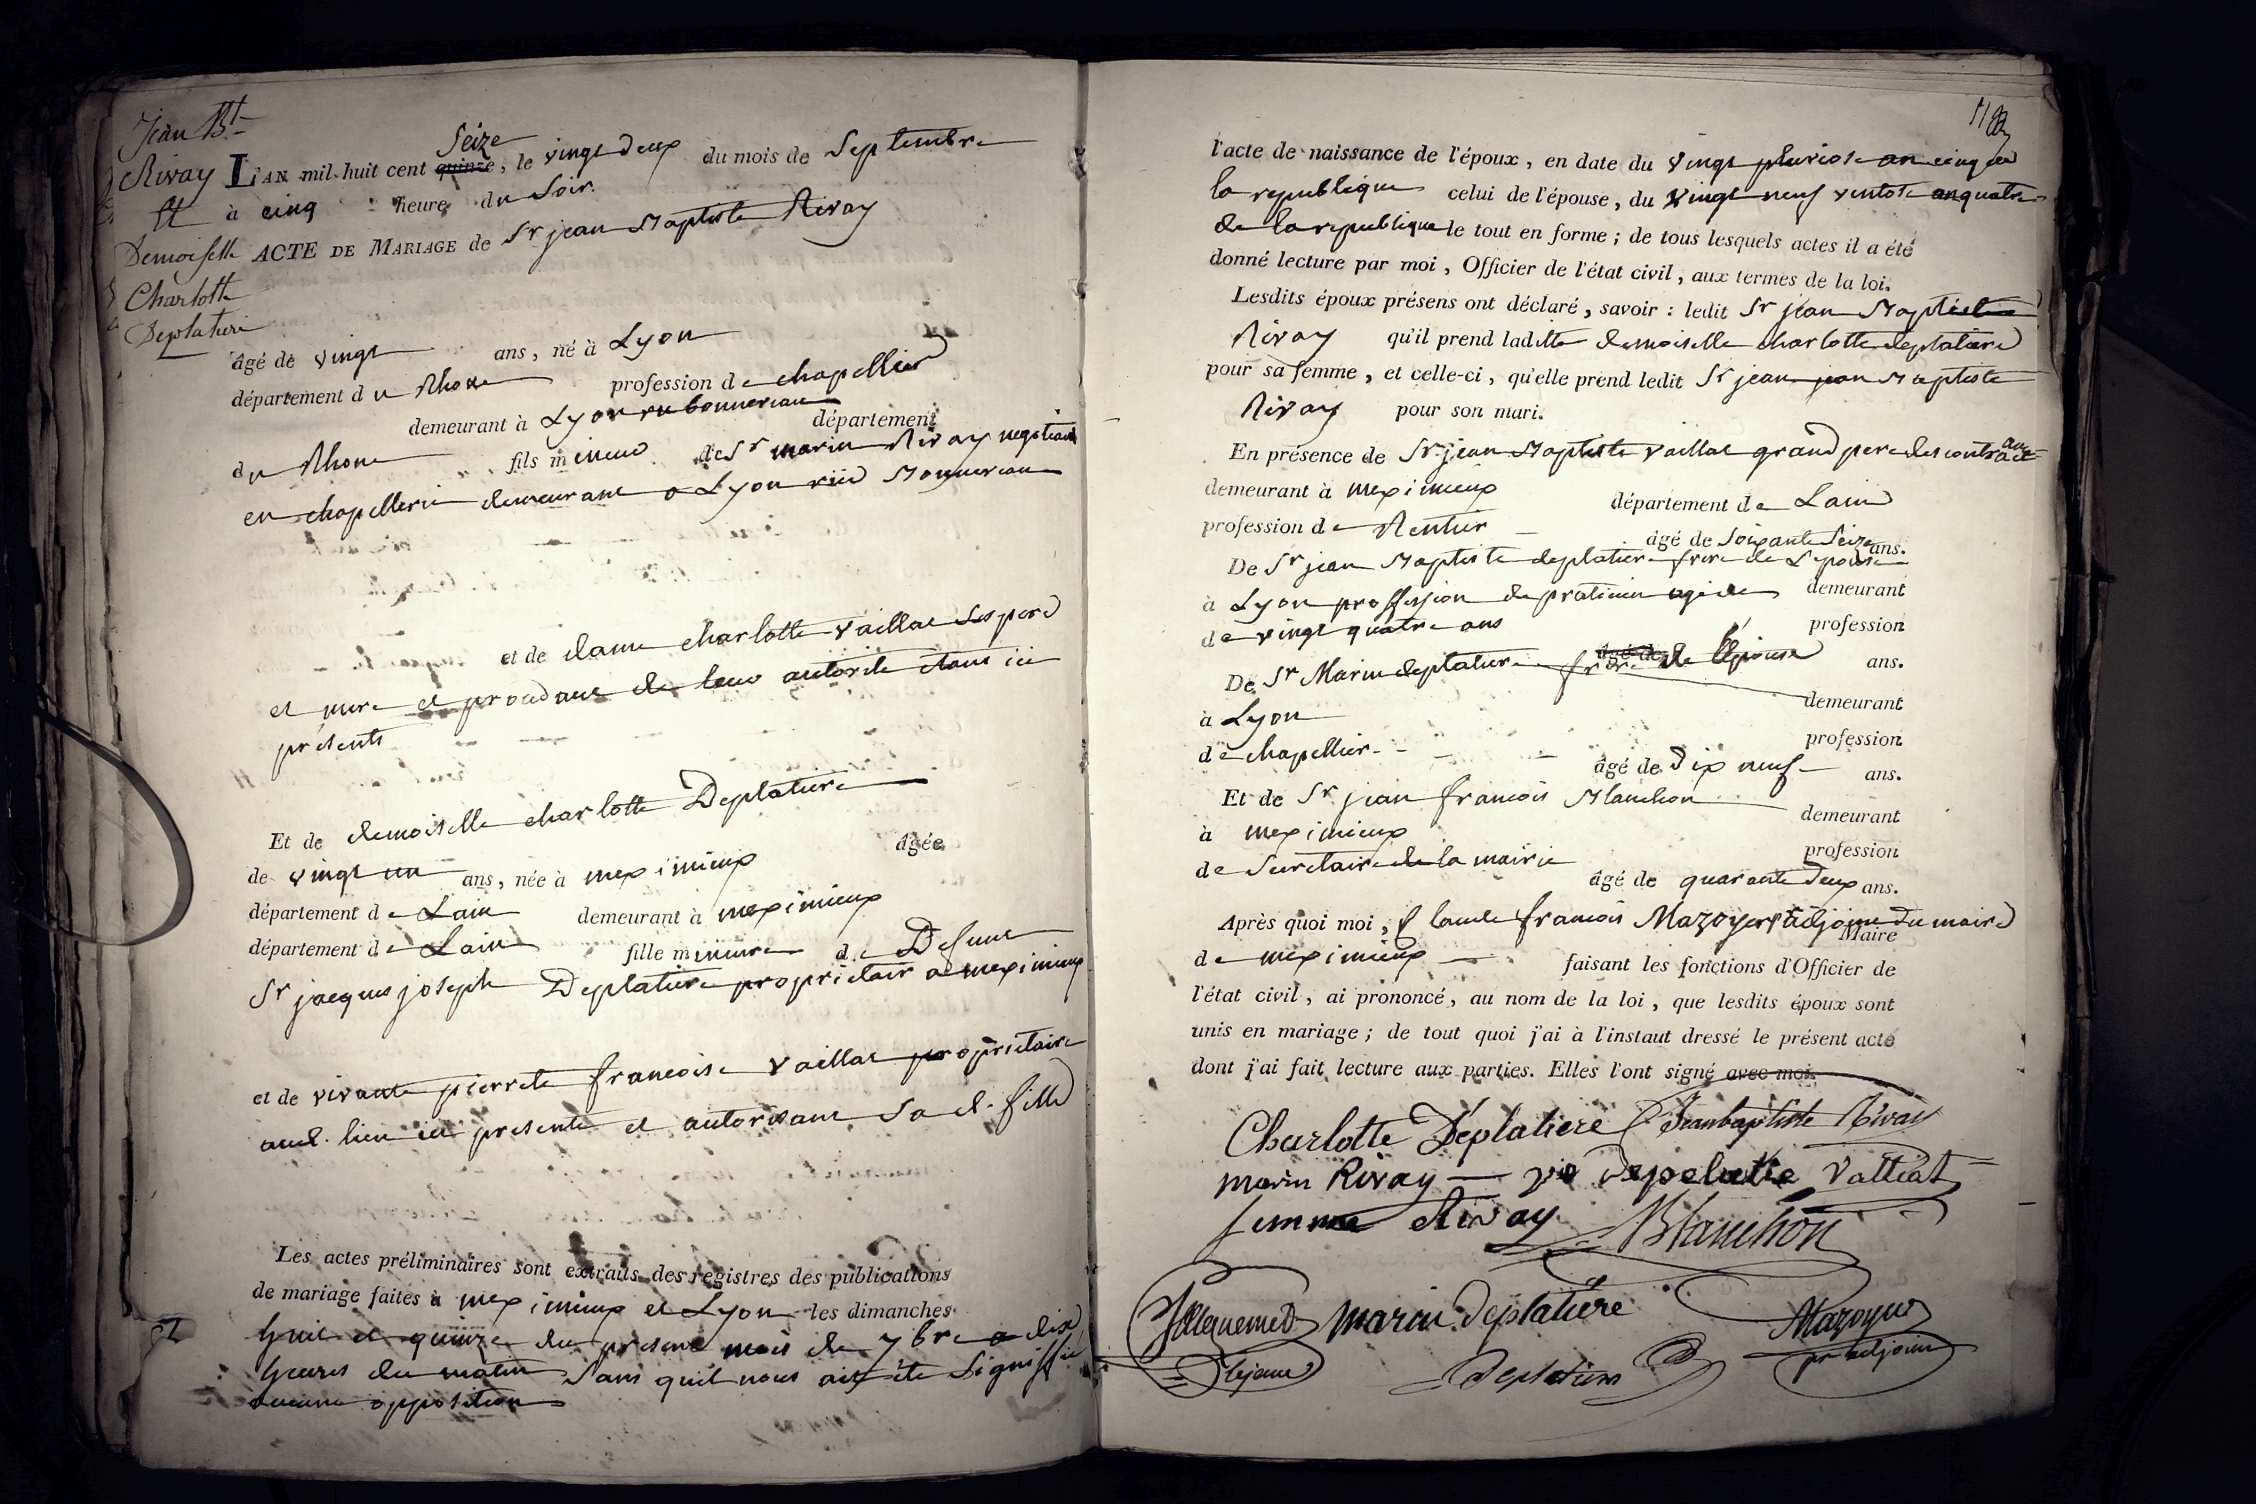 Jean Bt
Rivay
et
Demoiselle
Charlotte
Deplatieri
L'AN mil huit cent quinze Seize, le vingt deux du mois de Septembre
à cinq heure du Soir.
ACTE DE MARIAGE de Sr jean Baptiste Rivay
âgé de vingt ans, né à Lyon
département du Rhone profession de chapellier
demeurant à Lyon rue bonneveau département
du Rhone fils mineur de Sr marin Rivay negotiant
en chapellerie demeurant a Lyon rüe Bonneveau
et de dame charlotte vaillat Ses pere
et mere et procedant de leur autorité étant ici
présents
Et de demoiselle charlotte Deplatiere âgée
de vingt un ans, née à meximieux
département de Lain demeurant à meximieux
département de Lain fille mineure de Defunt
Sr jacques joseph Deplatiere proprietair a meximieux
et de vivante pierrete francoise vaillat propriétaire
aud. lieu ici presente et autorisant Sa d. fille
Les actes préliminaires sont extraits des registres des publications
de mariage faites à meximieux et Lyon les dimanches
huit et quinze du present mois de 7bre a dix
heures du matin Sans qu'il nous ait été Signiffié
aucune opposition
l'acte de naissance de l'époux, en date du vingt pluviose an cinq de
la republique celui de l'épouse, du vingt neuf ventose an quatre
de la republique le tout en forme ; de tous lesquels actes il a été
donné lecture par moi, Officier de l'état civil, aux termes de la loi.
Lesdits époux présens ont déclaré, savoir : ledit Sr jean Baptiste
Rivay qu'il prend laditte demoiselle charlotte deplatiere
pour sa femme, et celle-ci, qu'elle prend ledit Sr jean jean Baptiste
Rivay pour son mari.
En présence de Sr jean Baptiste vaillat grand pere des contractants
demeurant à meximieux département de Lain
profession de Rentier âgé de Soixante Seize ans.
De Sr jean Baptiste deplatiere frere de Lepouse demeurant
à Lyon proffession de praticien agé de profession
de vingt quatre ans âgé de ans.
De Sr Marin deplatiere frere de l'épouse demeurant
à Lyon profession
de chapellier âgé de Dix neuf ans.
Et de Sr jean francois Blanchon demeurant
à meximieux profession
de Secretaire de la mairie âgé de quarante Deux ans.
Après quoi moi, Claude francois Mazoyer adjoint du maire Maire
de meximieux faisant les fonctions d'Officier de
l'état civil, ai prononcé, au nom de la loi, que lesdits époux sont
unis en mariage ; de tout quoi j'ai à l'instaut dressé le présent acte
dont j'ai fait lecture aux parties. Elles l'ont signé avec moi.
Charlotte Déplatiere Jeanbaptiste Rivay
marin Rivay ve Depelatie Valliat
femme Rivay Blanchon
marin deplatiere Mazoyer
lejeune deplatiere pr adjoint